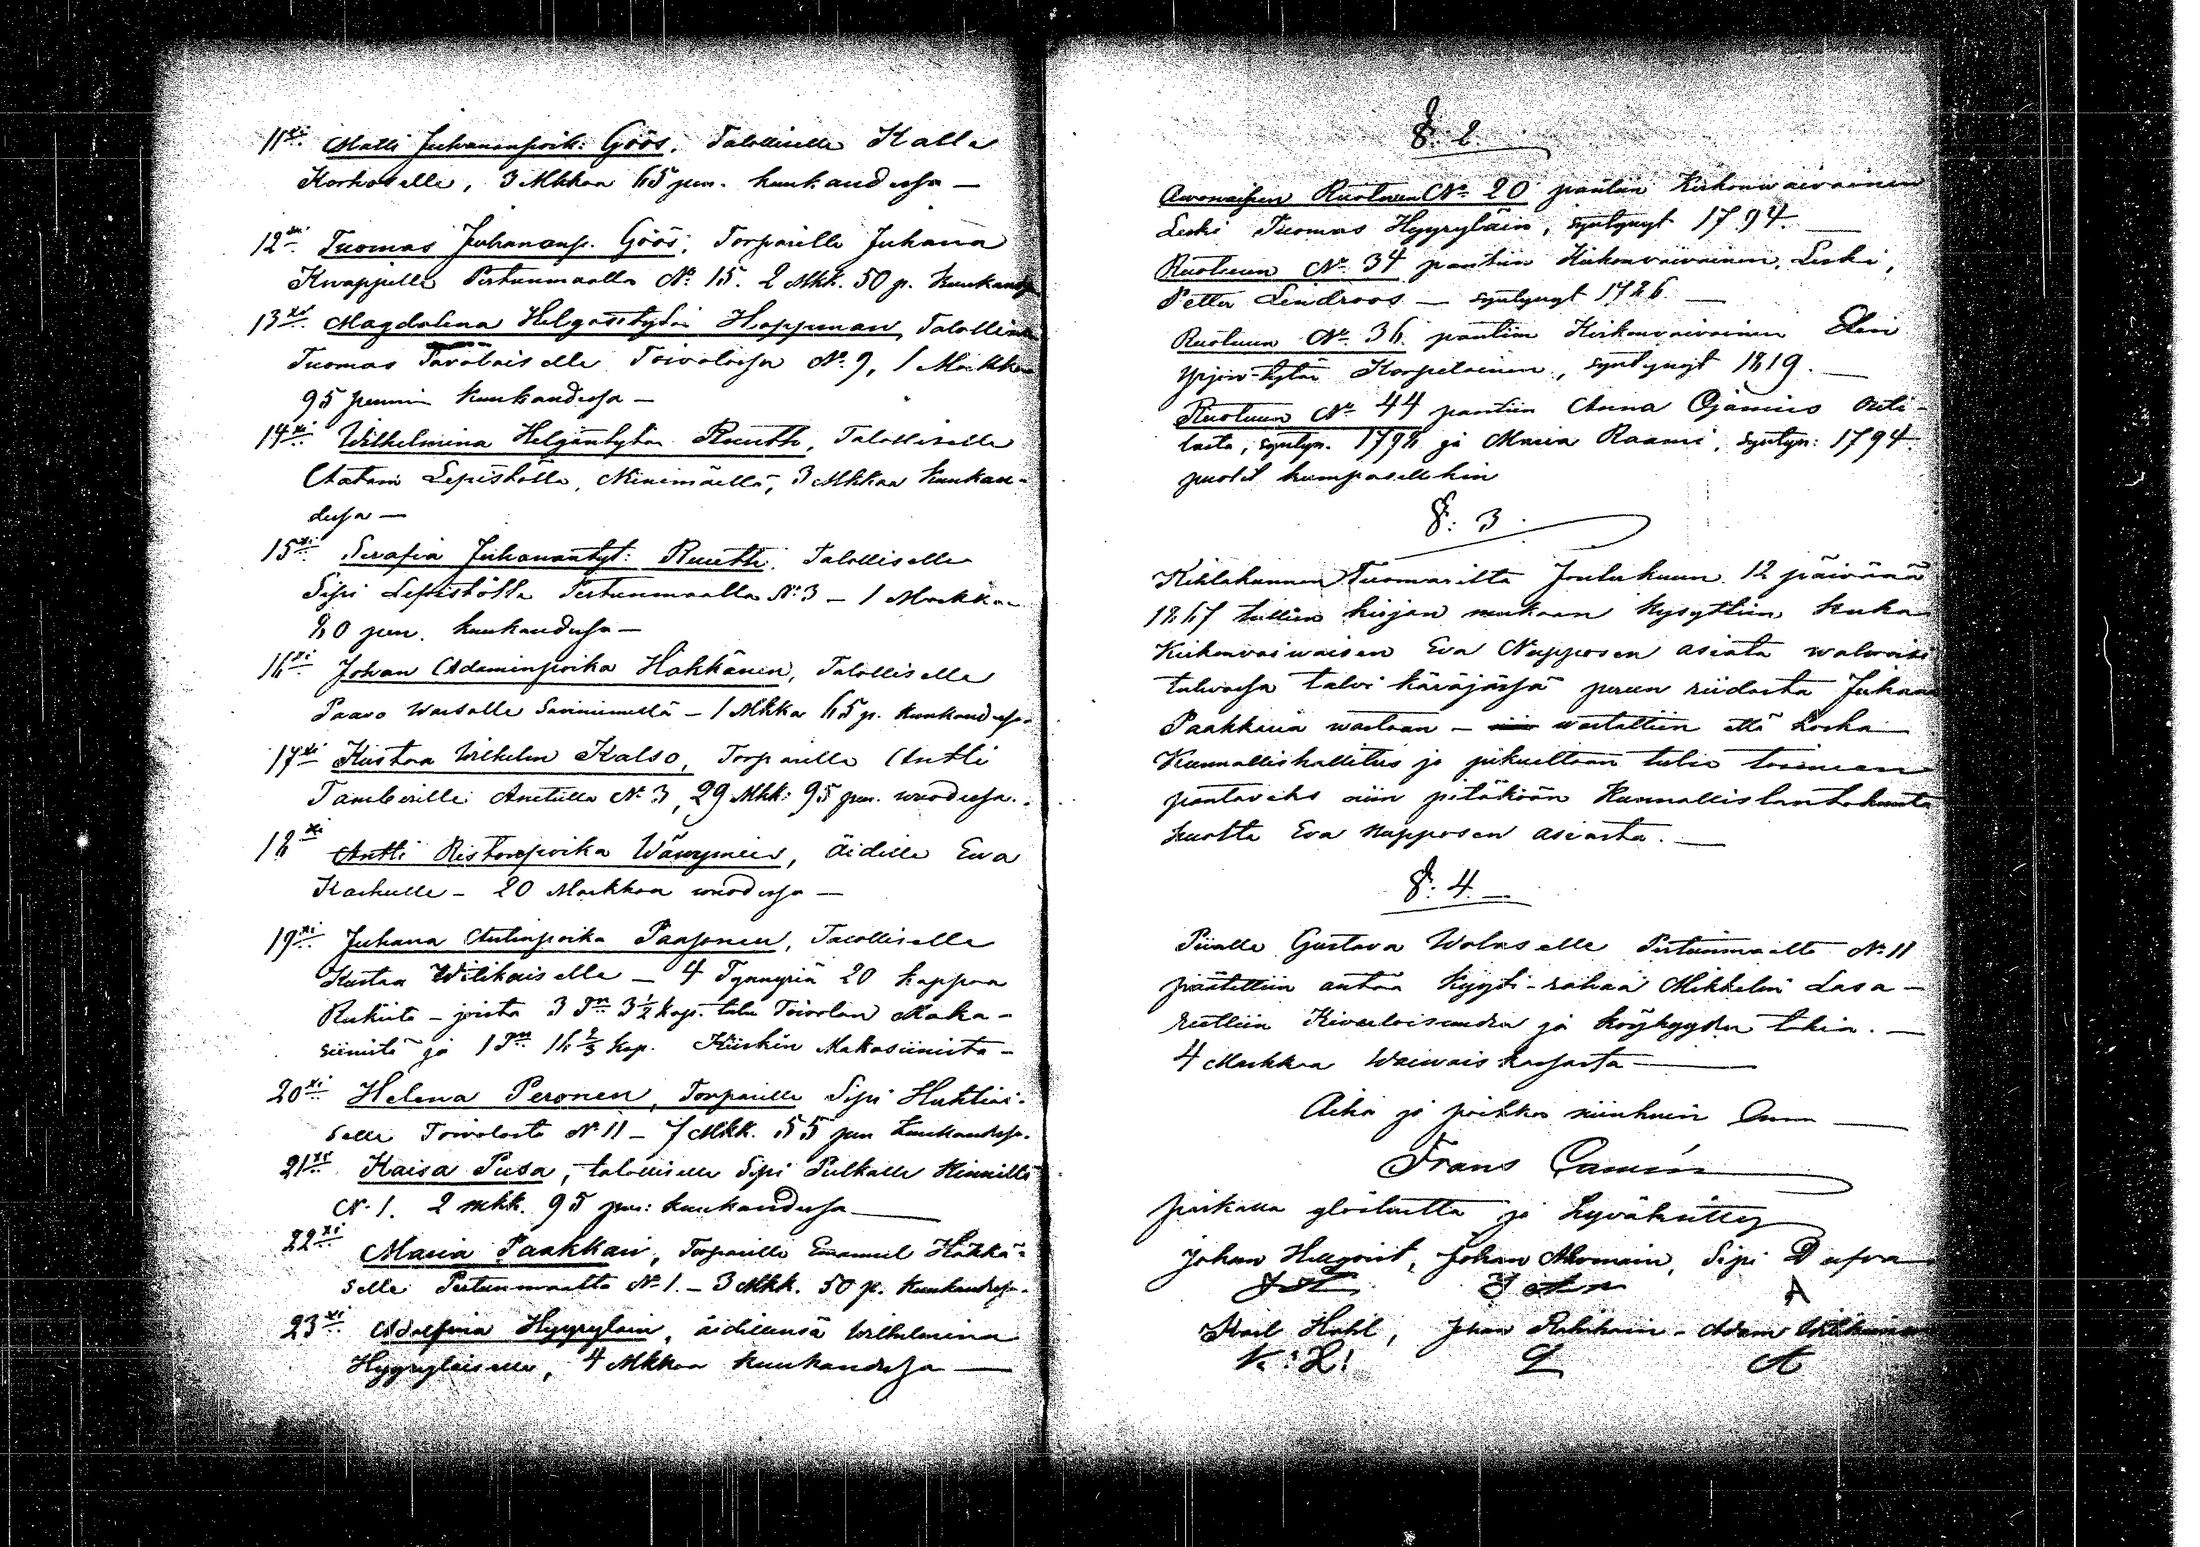 11xi. Matti Juhananpoik: Göös, Talolliselle Kalle
Korhoselle, 3 Mkkaa 65 pen. kuukaudessa —
12xi. Tuomas Juhananp. Göös, Torparille Juhana
Knappille Pertunmaalla No 15. 2 Mkk. 50 p. kuukaudessa
13xi. Magdalena Helgasintytär Hoppman, Talolliselle
Tuomas Tavalaiselle Toivolassa No 9, 1 Markka
95 penniä kuukaudessa —
14xi. Wilhelmina Helgäntytär Ruuth, Talolliselle
Aatami Lepistölle, Niinimäellä, 3 Mkkaa kuukau-
dessa —
15xi. Serafia Juhanantyt: Ruuth. Talolliselle
Sipi Lepistölle Pertunmaalla No 3 — 1 Markka
80 pen. kuukaudessa —
16xi Johan Adaminpoika Häkkänen, Talolliselle
Paavo Warsalle Savinimellä — 1 Mkka 65 p. kuukaudessa.
17xi Kustaa Wilhelm Kalso, Torparille Antti
Tamberille Anttilla No 3, 29 Mkk: 95 pen. wuodessa.
18xi Antti Ristonpoika Wäwyneis, äidille Ewa
Karhulle — 20 Markkaa wuodessa —
19xi. Juhana Antinpoika Paasonen, Talolliselle
Kustaa Witikaiselle — 4 Tynnyriä 20 kappaa
Rukiita — joista 3 Tn 3 1/2 kap. tulee Toivolan Maka-
siinista ja 1 Tn 16 2/3 kap. Kuitin Makasiinista —
20xi Helena Peronen, Torparille Sipi Huhtiai-
selle Toivolasta No 11 — 7 Mkk. 55 pen kuukaudessa.
21xi Kaisa Pusa, talolliselle Sipi Pulkalle Hinnillä
No 1. 2 mkk. 95 pen: kuukaudessa —
22xi Maria Paakkari, Torparille Emanuel Häkkä-
selle Pertunmaalta No 1. — 3 Mkk. 50 p. kuukaudessa.
23xi. Adolfina Hyyryläin, äidillensä Wilhelmina
Hyyryläiselle, 4 Mkkaa kuukaudessa —
§. 2.
Ruotuun No 20 pantiin Kirkonwaiwainen
Leski Tuomas Hyyryläin, syntynyt 1794. —
Ruotuun No 34 pantiin Kirkonwaiwainen, Leski,
Petter Lindroos — syntynyt 1786. —
Ruotuun No 36 pantiin Kirkonwaiwainen Elin
Yrjön-tytär Korpelainen, syntynyt 1819. —
Ruotuun No 44 pantiin Anna Ojamies
syntyn. 1798 ja Maria Raami, syntyn: 1794.
puolet kumpasellekin
§. 3.
Kihlakunnan Tuomarilta Joulukuun 12 päivänä
1867 tullen kirjan mukaan kysyttiin kuka
Kirkonwaiwaisen Eva Nupposen asiata walwoisi
tulewassa talvi käräjässä perun riidasta Juhana
Paakkaria wastaan — wastattiin että koska
Kunnallishallitus jo pikuultaan tulee toimeen
pantavaks niin pitäköön Kunnallislautakunta
huolta Eva Nupposen asiasta. —
§. 4.
Piialle Gustava Wolaselle Pertunmaalta No 11
päätettiin antaa kyyti-rahaa Mikkelin Lasa-
rettiin Kivuloisuuden ja köyhyyden tähden. —
4 Markkaa Waiwaiskassasta —
Aika ja paikka niinkuin
Frans Gamén
paikalla ylösluettu ja hyväksitty
Johan Hellqvist, Johan Ahomain, Sipi Dufva
Karl Hohl, Johan Adam Witikainen
K: H: A